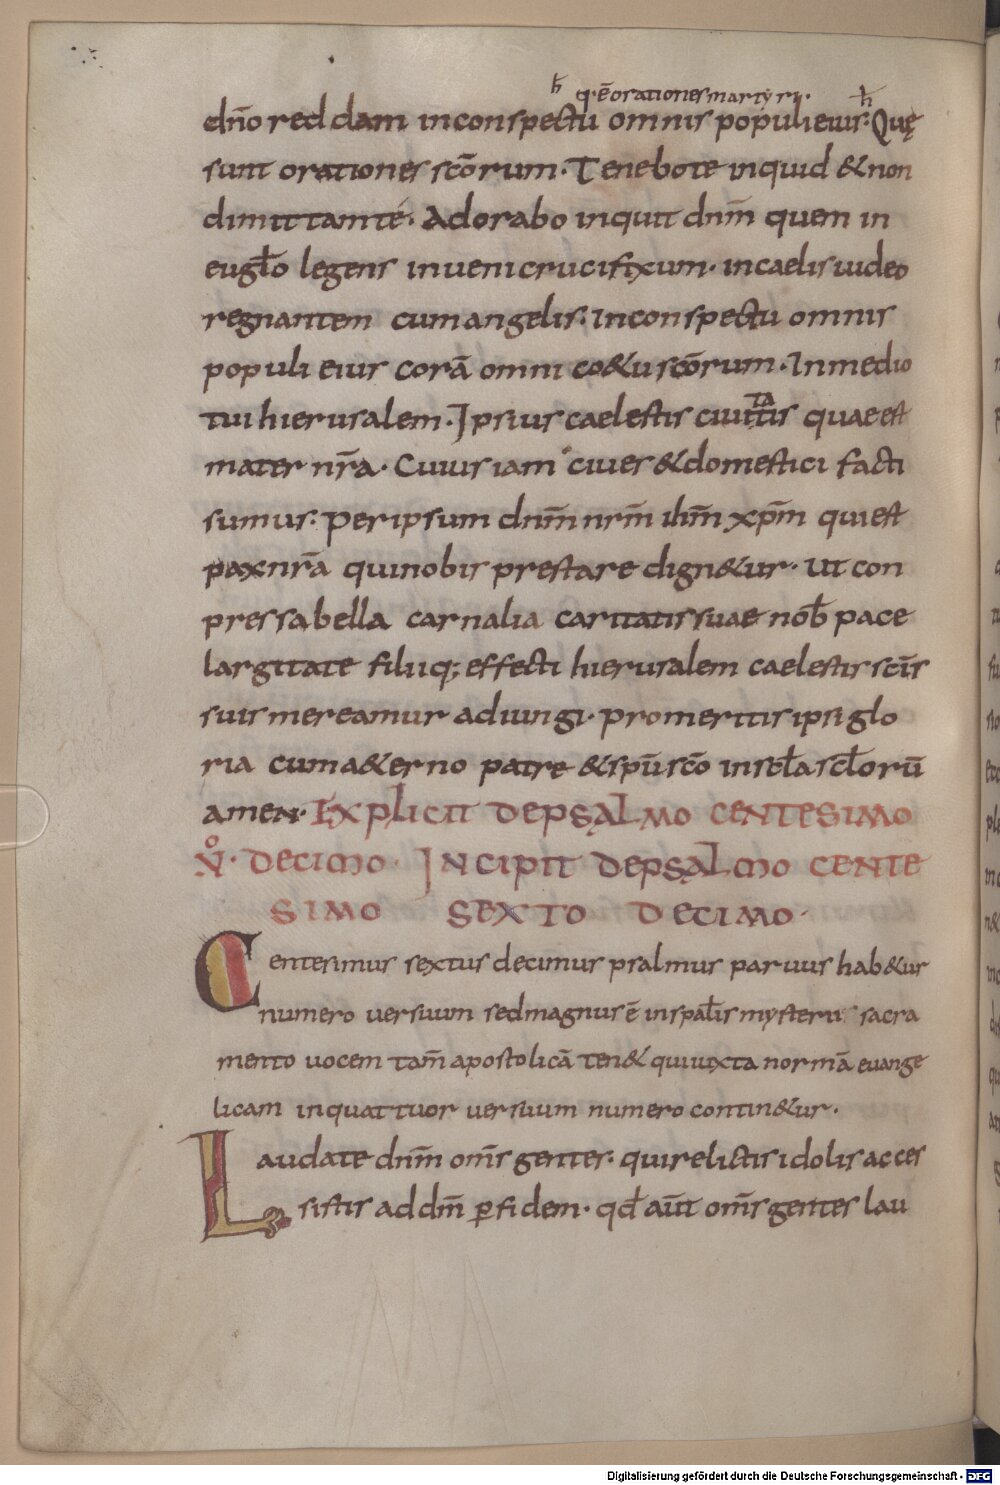 h q· ē orationes martyrii· h
dn̄o reddam in conspectu omnis populi eius: Quę
sunt orationes sc̄orum· Tenebo te inquid & non
dimittam té· Adorabo inquit dnm̄ quem in
eugł̄o legens inueni crucifixum· in caelis uideo
regnantem cum angelis: In conspectu omnis
populi eius corā omni co&u sc̄orum· In medio
tui hierusalem· Ipsius caelestis ciuitatis quae est
mater nr̄a· Cuius iam ciues & domestici facti
sumus: Per ipsum dnm̄ nrm̄ ihm̄ xpm̄ qui est
pax nr̄a qui nobis prestare dign&ur· Ut con
pressa bella carnalia caritatis suae nob̄ pace
largitate filiiq; effecti hierusalem caelestis sc̄is
suis mereamur adiungi· pro meritis ipsi glo
ria cum a&erno patre & spū sc̄o in scł̄a scł̄orū
amen· Explicit de psalmo centesimo
V̊· decimo· Incipit de psalmo cente
simo sexto decimo·
Centesimus sextus decimus psalmus paruus hab&ur
numero uersuum sed magnus ē in spał̄is mysterii sacra
mento uocem tam̄ apostolicā ten& qui iuxta normā euange
licam in quattuor uersuum numero contin&ur·
Laudate dnm̄ om̄s gentes· qui relictis idolis acces
sistis ad dm̄ ꝑ fidem· qd̄ aūt om̄s gentes lau
Digitalisierung gefördert durch die Deutsche Forschungsgemeinschaft - DFG